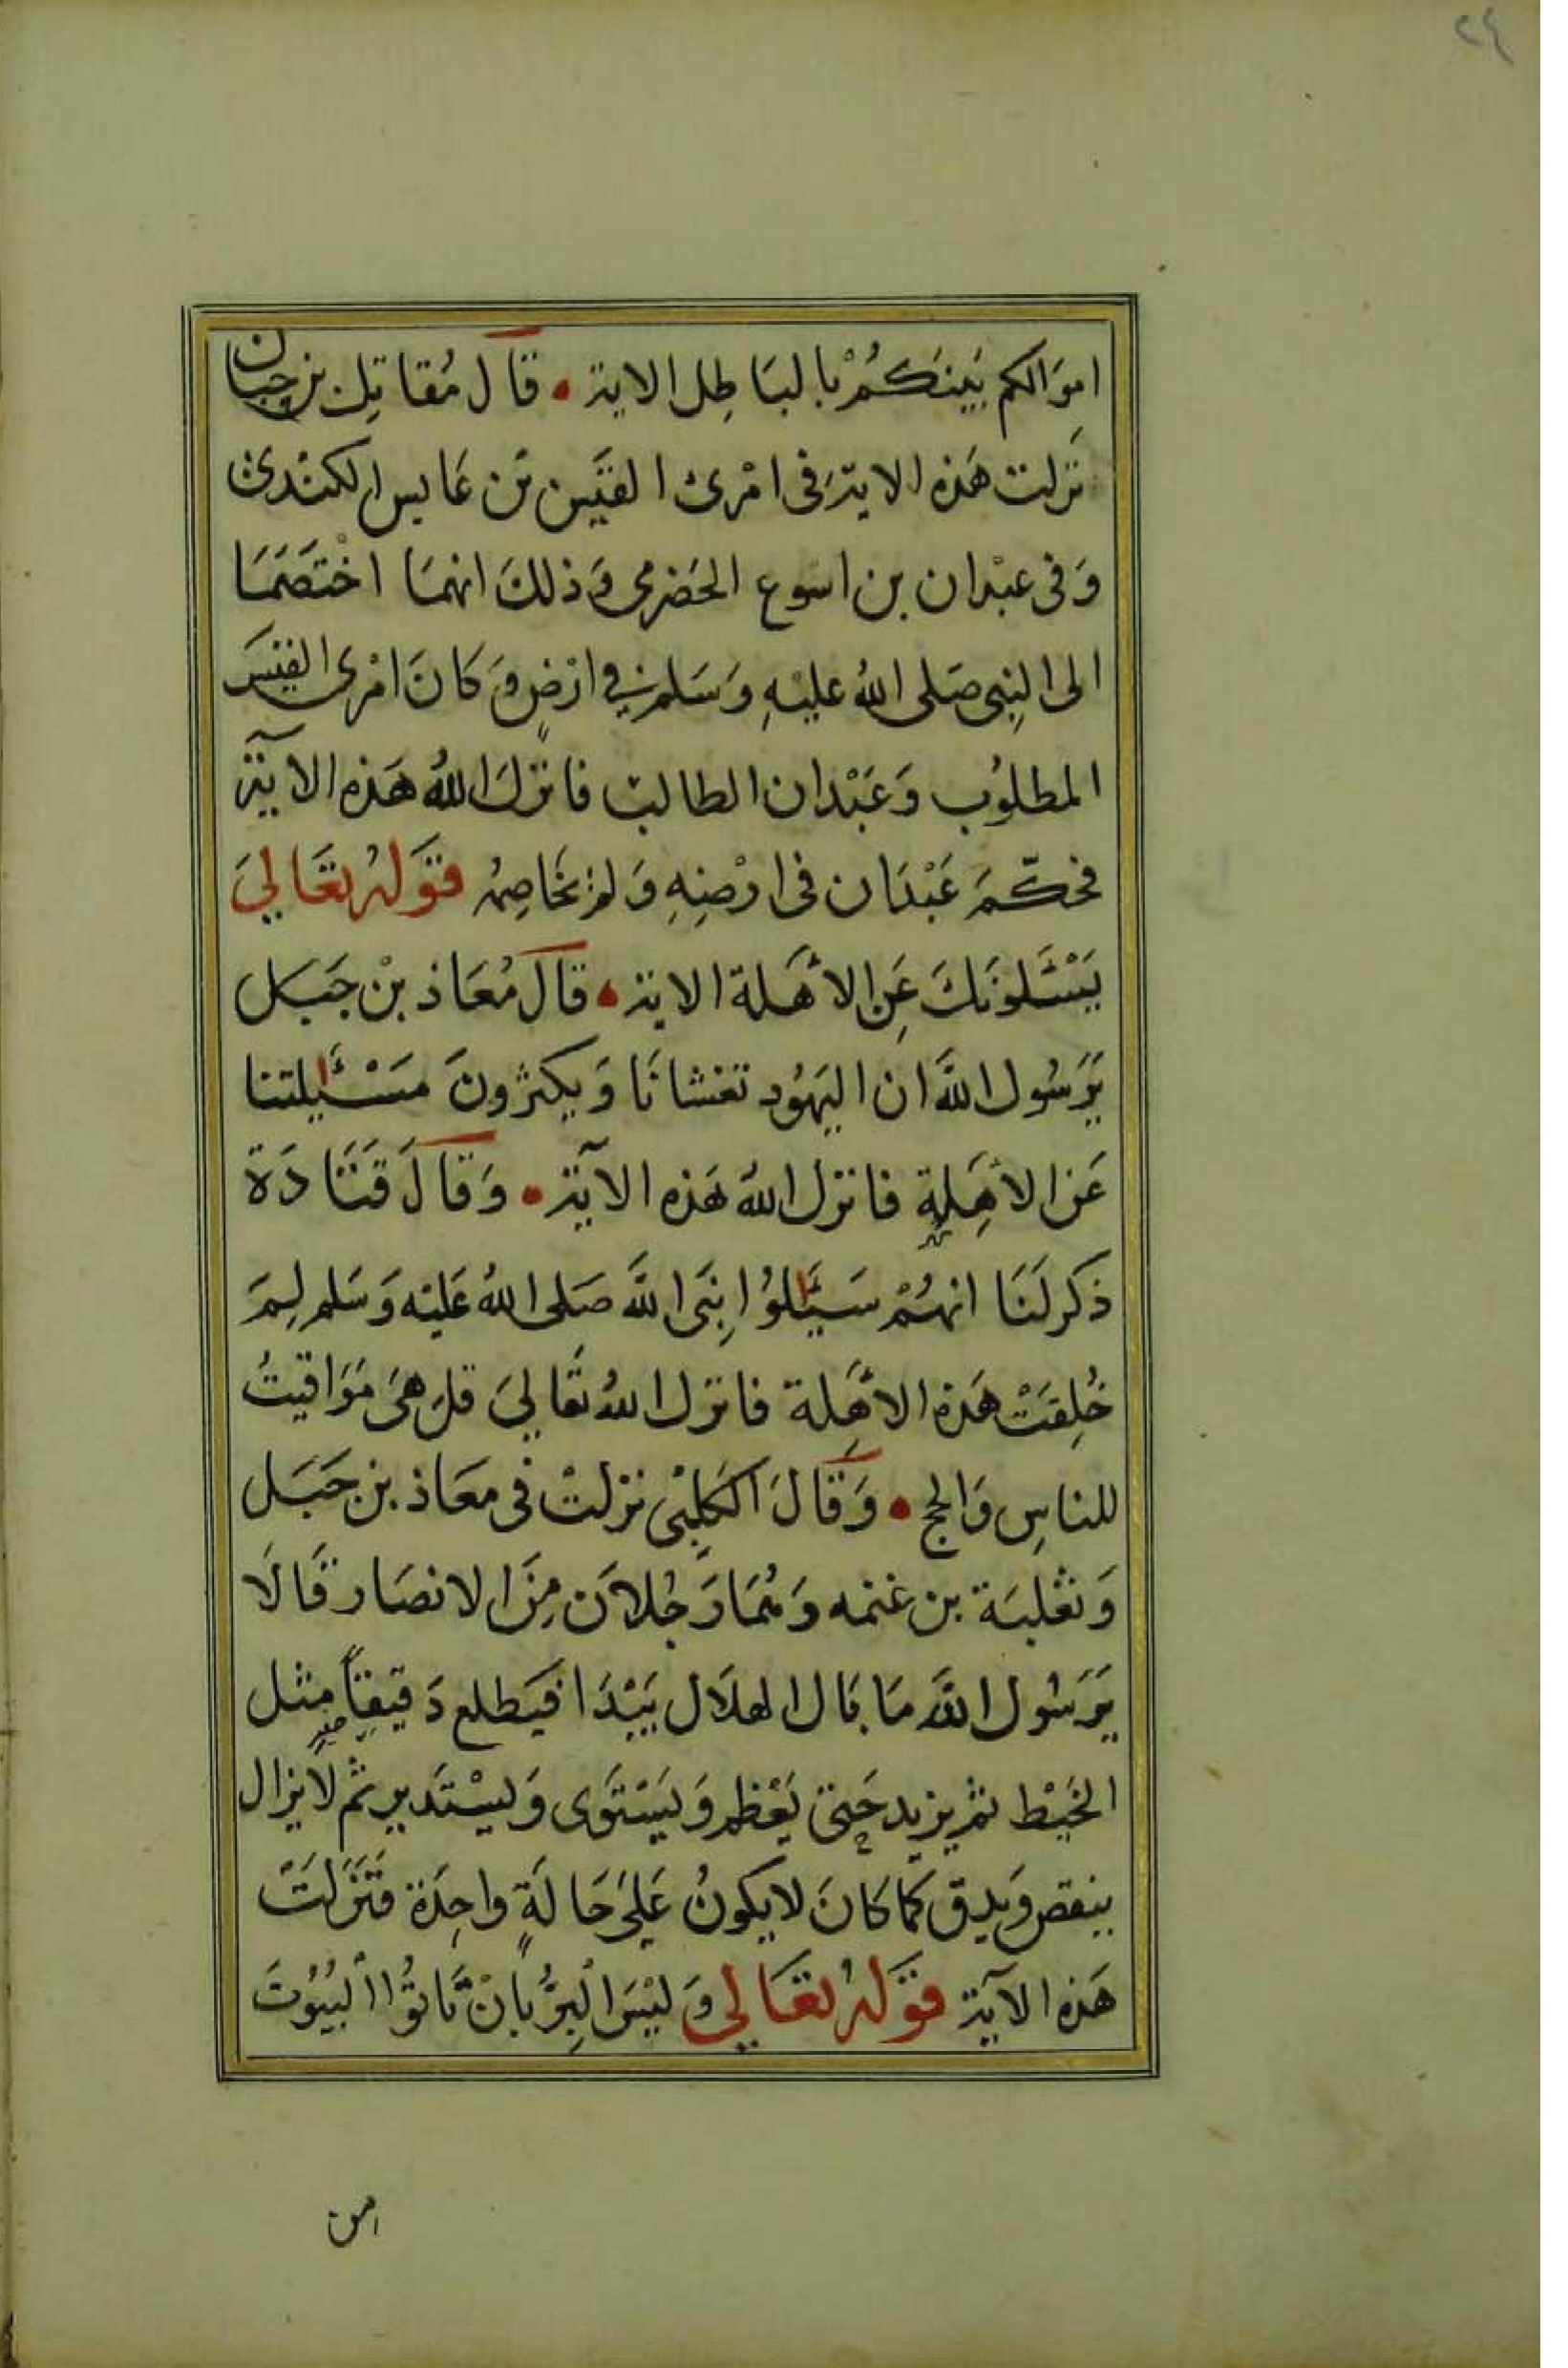 ٢٤
اموَالكم بَينَكُمْ بالبَاطِل الاية • قَالَ مُقاتِل بن حِبان
نزلت هَذه الاية فى امْرئ القَيس بن عَابس الكندى
وَفى عبْدان بن اسوع الحَضرمى وَذلكَ انهمَا اخْتصَمَا
الى النبِى صَلى اللهُ عليْهِ وَسَلم فى ارْضٍ وَكانَ امْرى القيْس
المطلوُب وَعَبْدان الطالبْ فانزلَ اللهُ هَذه الآية
فحكّمَ عَبْدَان فى ارْضِهِ وَلمْ يخَاصِمْه قوَلهُ تعَالىَ
يَسْئَلونَكَ عَنِ الأهَلة الاية • قَالَ مُعَاذ بنْ جَبَل
يَرَسُول اللهَ ان اليَهُود تغشانَا وَيكثرونَ مسْئَلتنا
عَن الأهِلةِ فانزل اللهُ هَذه الآية • وَقَالَ قَتَادَة
ذكر لنَا انهُمْ سَئَلوُا نِبَى اللهَ صَلى اللهُ عَليْه وَسَلم لِمَ
خُلِقَتْ هَذه الأهِلة فانزل اللهُ تعَالىَ قل هىَ مَوَاقيتُ
للناسِ وَالحج • وَقَالَ الكَلِبْى نزلتْ فى معَاذ بن جَبَل
وَثعْلبَة بن غنمه وَهُمَا رَجُلاَن مِنَ الانصَار قَالاَ
يَرَسُول اللهَ مَا بَال الهلاَل يَبْدَا فيَطلع دَقيِقاً مِثل
الخَيْط ثم يزيد حَتى يَعْظم وَيَسْتوَى وَيسْتَدير ثم لاَ يزال
ينقص وَيدق كمَا كانَ لا يكونُ عَلىَ حَالَةٍ واحِدَة فَنَزَلتَ
هَذه الآية قوَلهُ تعَالى وَليْسَ الْبِرُّ بِانْ تَاتوُا الْبُيُوتَ
من